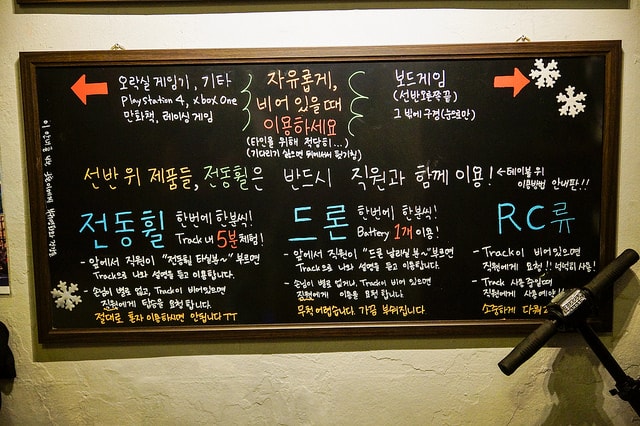 오락실 게임기, 기타
PlayStation 4, xbox One
만화책, 레이싱 게임
자유롭게,
비어 있을 때
이용하세요
(타인을 위해 적당히...)
보드게임
(선반 오른쪽 끝)
그 밖에 구경(눈으로만)
선반 위 제품들, 전동휠은 반드시 직원과 함께 이용!
←테이블 위
이용방법 안내판!!
전동휠
한번에 한분씩!
Track 내 5분 체험!
- 앞에서 직원이 "전동휠 타실분~" 부르면
Track으로 나와 설명을 듣고 이용합니다.
- 손님이 별로 없고, Track이 비어있으면
직원에게 탑승을 요청 합니다.
절대로 혼자 이용하시면 안됩니다 ㅜㅜ
드론
한번에 한분씩!
Battery 1개 이용!
- 앞에서 직원이 "드론 날리실 분~" 부르면
Track으로 나와 설명을 듣고 이용합니다.
- 손님이 별로 없거나, Track이 비어 있으면
직원에게 이용을 요청 합니다.
무척 어렵습니다. 가끔 부쉬집니다
RC류
- Track이 비어있으면
직원에게 요청!! 넉넉히 사용!
- Track 사용중일때
직원에게 사용예약
소중하게 다뤄